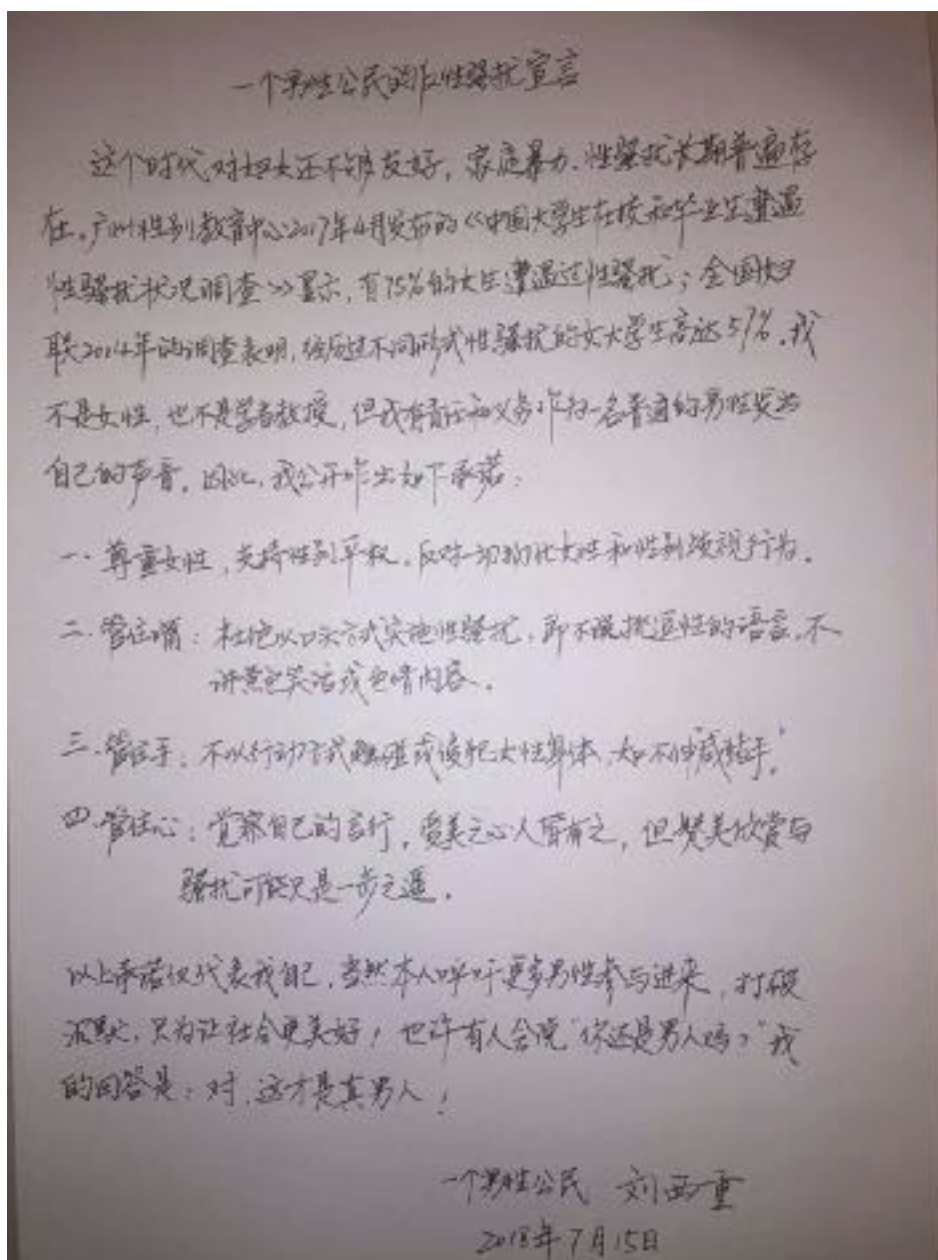 一个男性公民的反性骚扰宣言
这个时代对妇女还不够友好，家庭暴力、性骚扰长期普遍存
在。广州性别教育中心2017年4月发布的《中国大学生在校和毕业生遭遇
性骚扰状况调查》显示，有75%的女生遭遇过性骚扰；全国妇
联2014年的调查表明，经历过不同形式性骚扰的女大学生高达57%。我
不是女性，也不是学者教授，但我有责任和义务作为一名普通的男性发出
自己的声音。因此，我公开作出如下承诺：
一、尊重女性，支持性别平权。反对一切物化女性和性别歧视行为。
二、管住嘴：杜绝以口头方式实施性骚扰，即不说挑逗性的语言，不
讲黄色笑话或色情内容。
三、管住手：不以行动方式触碰或侵犯女性身体，如不伸“咸猪手”
四、管住心：觉察自己的言行，爱美之心人皆有之，但赞美欣赏与
骚扰可能只是一步之遥。
以上承诺仅代表我自己，当然本人呼吁更多男性参与进来，打破
沉默，只为让社会更美好！也许有人会说“你还是男人吗？”我
的回答是：对，这才是真男人！
一个男性公民 刘西重
2018年7月15日